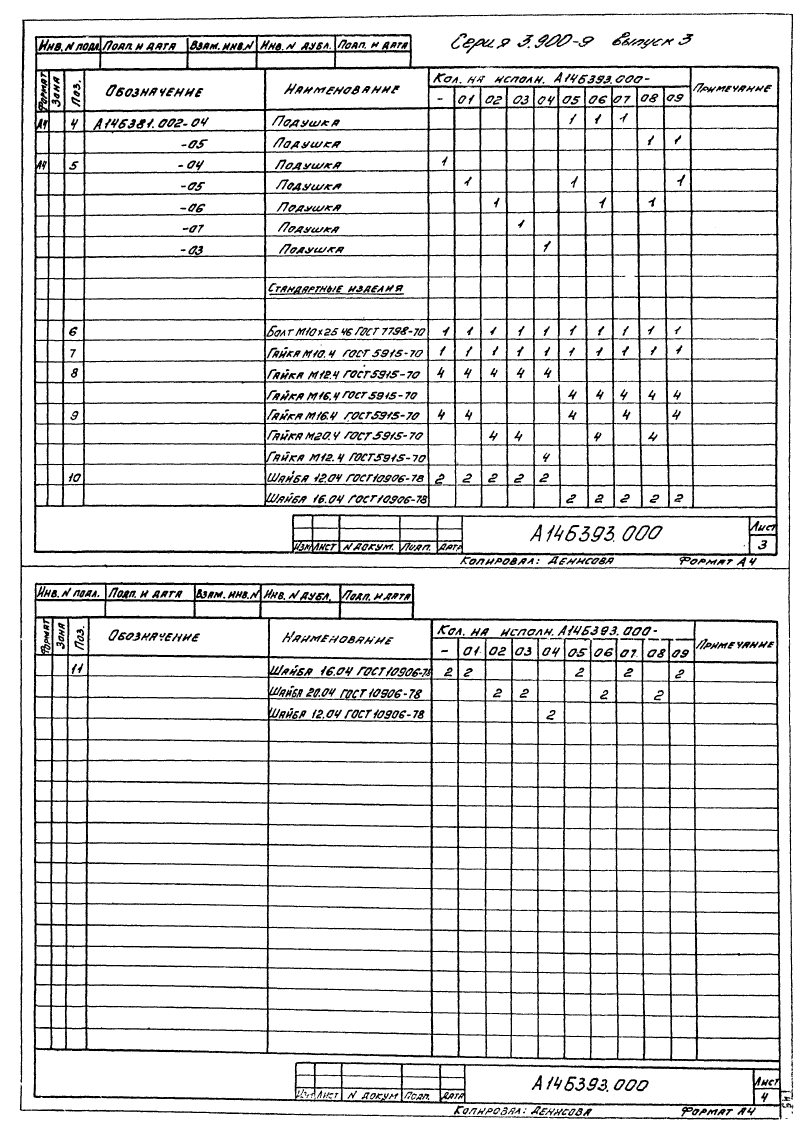 Серия 3.900-9 Выпуск 3
Инв. N подл. Подп. и дата Взам. инв. N Инв. N дубл. Подп. и дата
Формат Зона Поз. Обозначение Наименование Кол. на исполн. А14Б393.000- Примечание
- 01 02 03 04 05 06 07 08 09
А4 4 А14Б381.002-04 Подушка 1 1 1
-05 Подушка 1 1
А4 5 -04 Подушка 1
-05 Подушка 1 1 1
-06 Подушка 1 1 1
-07 Подушка 1
-03 Подушка 1
Стандартные изделия
6 Болт М10х25.46 ГОСТ 7798-70 1 1 1 1 1 1 1 1 1 1
7 Гайка М10.4 ГОСТ 5915-70 1 1 1 1 1 1 1 1 1 1
8 Гайка М12.4 ГОСТ 5915-70 4 4 4 4 4
Гайка М16.4 ГОСТ 5915-70 4 4 4 4 4
9 Гайка М16.4 ГОСТ 5915-70 4 4 4 4 4
Гайка М20.4 ГОСТ 5915-70 4 4 4 4
Гайка М12.4 ГОСТ 5915-70 4
10 Шайба 12.04 ГОСТ 10906-78 2 2 2 2 2
Шайба 16.04 ГОСТ 10906-78 2 2 2 2 2
Изм Лист N докум. Подп. Дата А14Б393.000 Лист 3
Копировал: Денисова Формат А4
Инв. N подл. Подп. и дата Взам. инв. N Инв. N дубл. Подп. и дата
Формат Зона Поз. Обозначение Наименование Кол. на исполн. А14Б393.000- Примечание
- 01 02 03 04 05 06 07 08 09
11 Шайба 16.04 ГОСТ 10906-78 2 2 2 2 2
Шайба 20.04 ГОСТ 10906-78 2 2 2 2
Шайба 12.04 ГОСТ 10906-78 2
Изм Лист N докум Подп. Дата А14Б393.000 Лист 4
Копировал: Денисова Формат А4